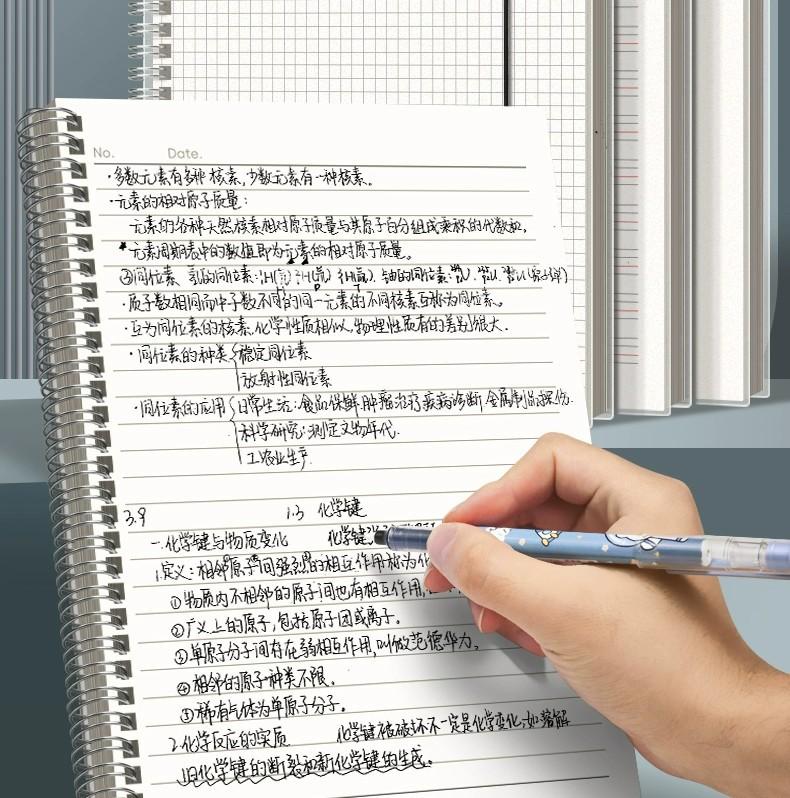 No. Date.
·多数元素有多种核素,少数元素有一种核素。
·元素的相对原子质量:
元素的各种天然核素相对原子质量与其原子百分组成乘积的代数和。
*元素周期表中的数值即为元素的相对原子质量。
③同位素、氢的同位素: 铀的同位素:
·质子数相同而中子数不同的同一元素的不同核素互称为同位素。
·互为同位素的核素,化学性质相似,物理性质有的差别很大.
·同位素的种类{稳定同位素
放射性同位素
·同位素的应用{日常生活:食品保鲜,肿瘤治疗,疾病诊断,金属制品探伤.
科学研究:测定文物年代.
工农业生产.
3.9 1.3 化学键
一.化学键与物质变化 化学键
1.定义:相邻原子间强烈的相互作用称为化
①物质内不相邻的原子间也有相互作用,
②广义上的原子,包括原子团或离子。
③单原子分子间存在弱相互作用,叫做范德华力。
④相邻的原子种类不限。
⑤稀有气体为单原子分子。
2.化学反应的实质 化学键被破坏不一定是化学变化,如溶解
旧化学键的断裂和新化学键的生成。